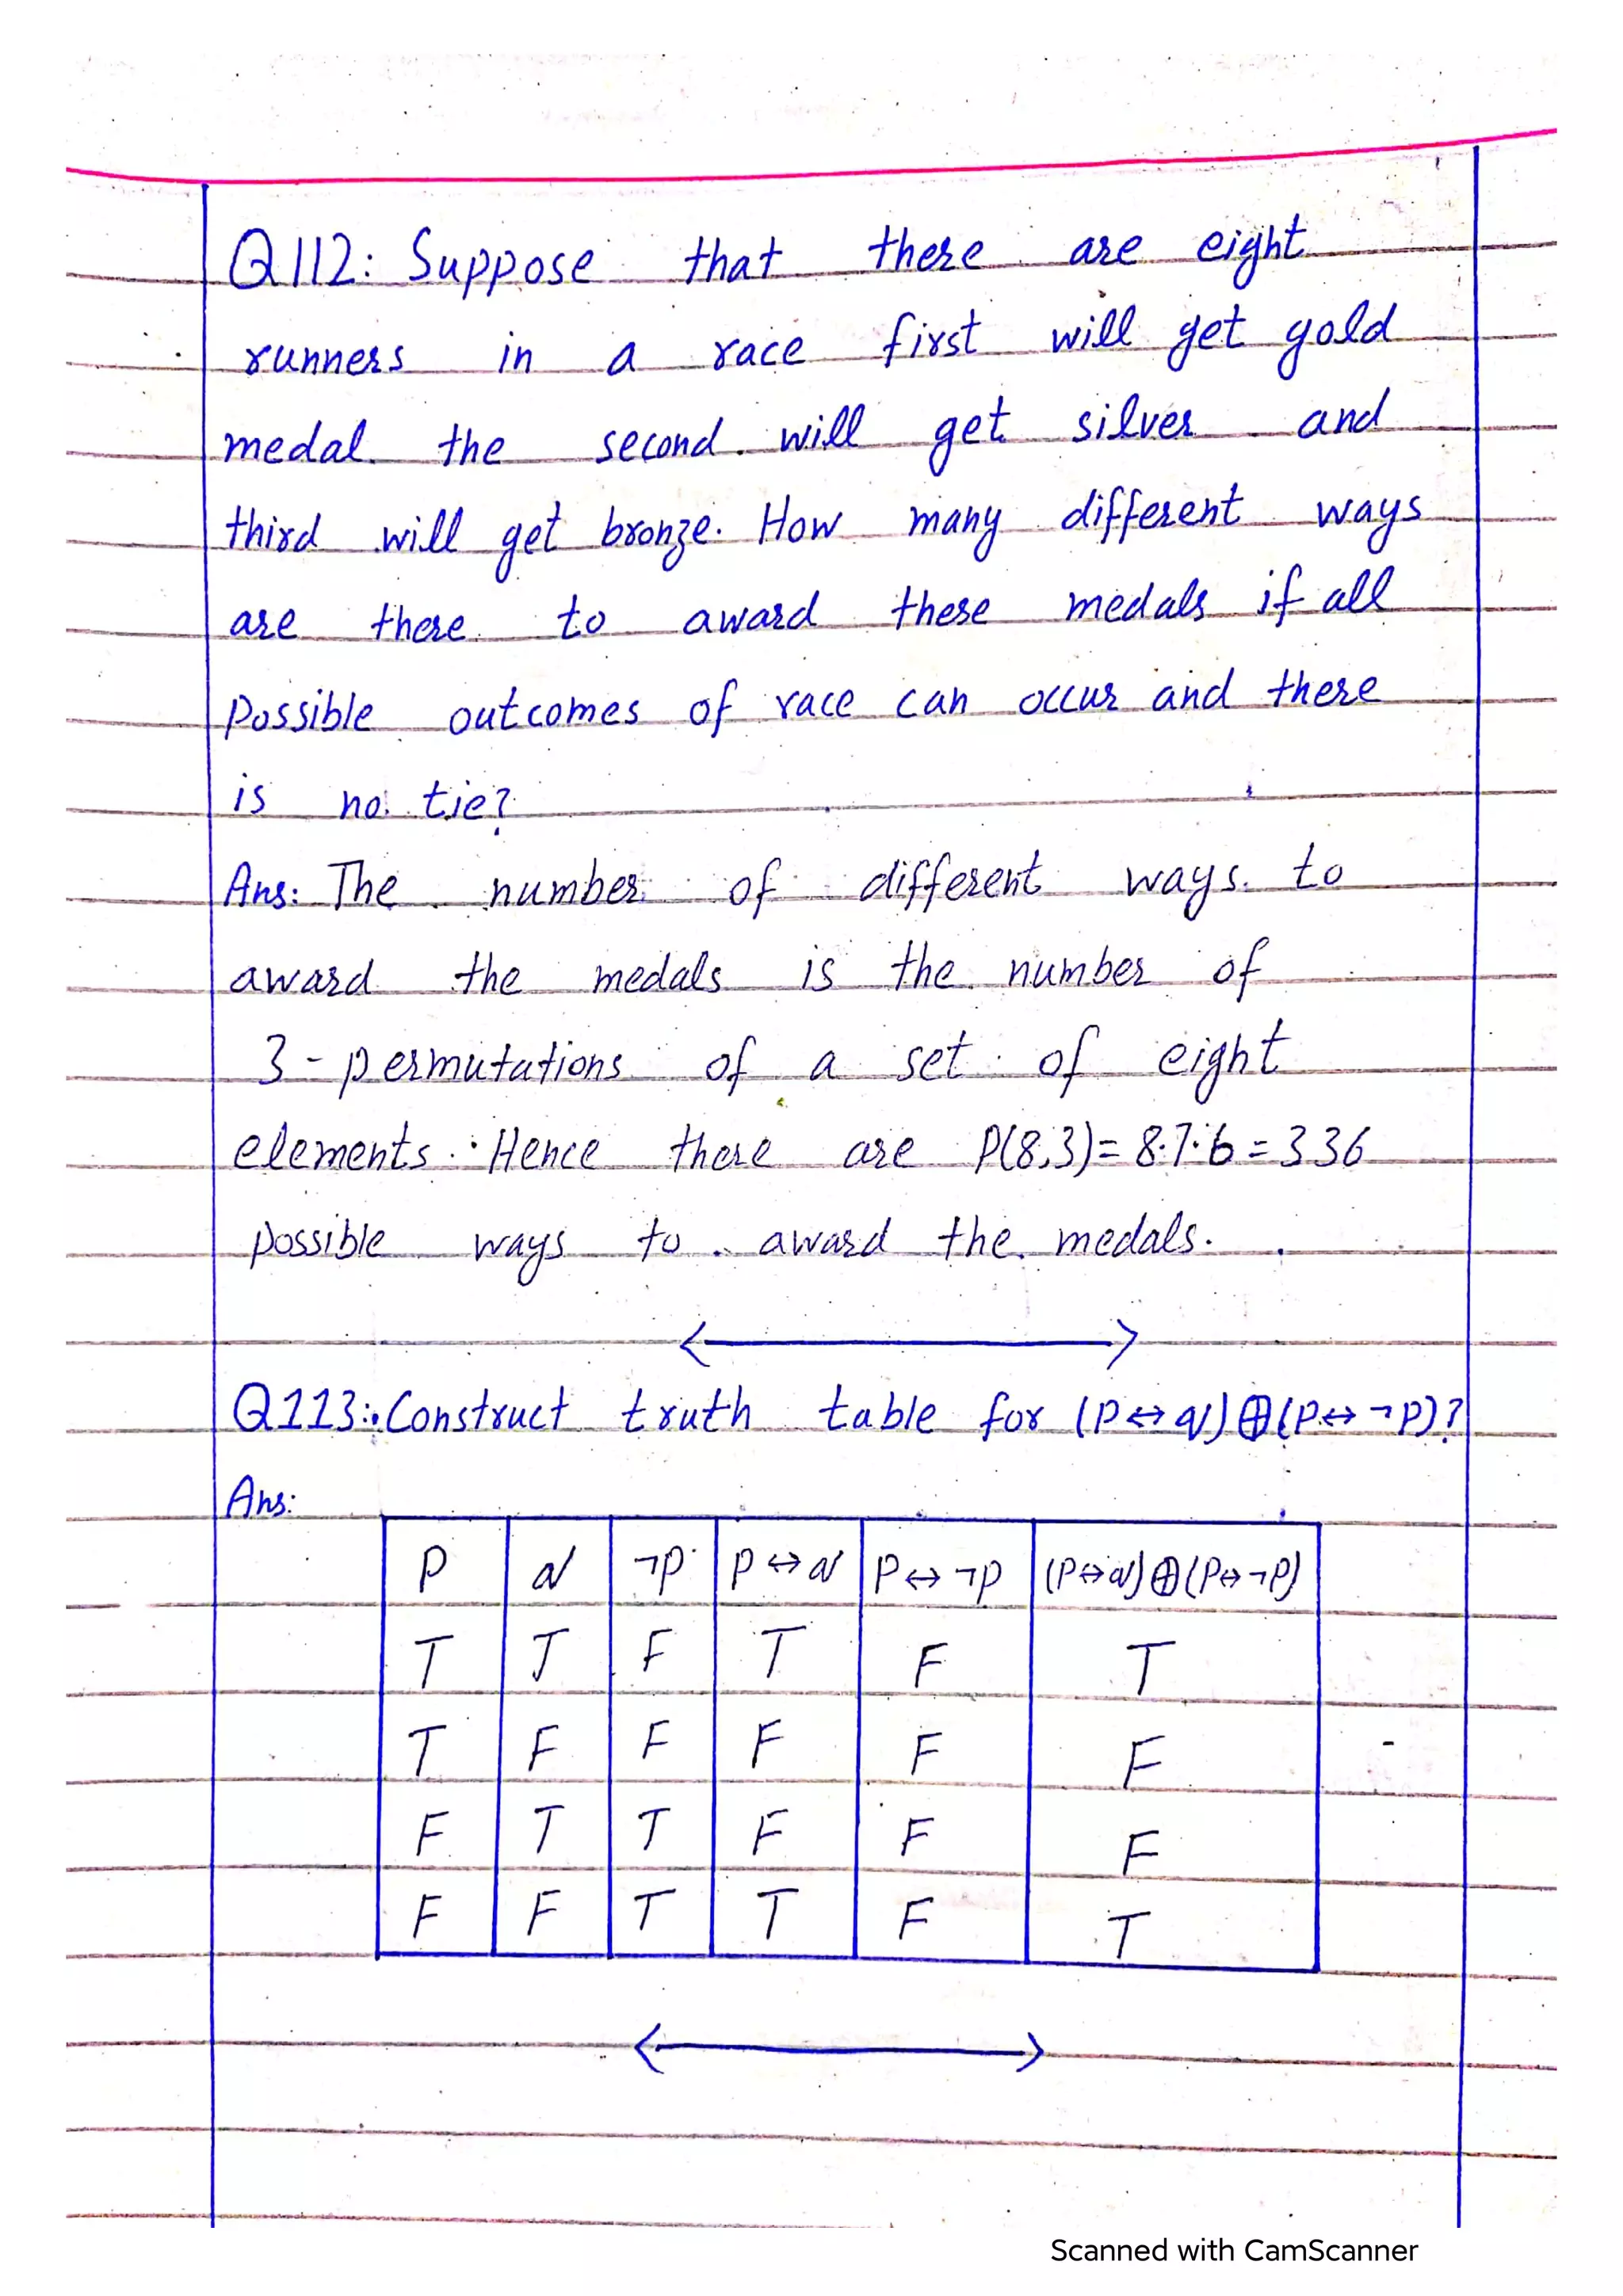 Q112: Suppose that there are eight
runners in a race first will get gold
medal the second will get silver and
third will get bronze. How many different ways
are there to award these medals if all
possible outcomes of race can occur and there
is no tie?
Ans: The number of different ways to
award the medals is the number of
3-permutations of a set of eight
elements. Hence there are P(8,3)=8.7.6=336
possible ways to award the medals.
Q113: Construct truth table for (P↔q)⊕(P↔¬P)?
Ans:
P q ¬P P↔q P↔¬P (P↔q)⊕(P↔¬P)
T T F T F T
T F F F F F
F T T F F F
F F T T F T
Scanned with CamScanner